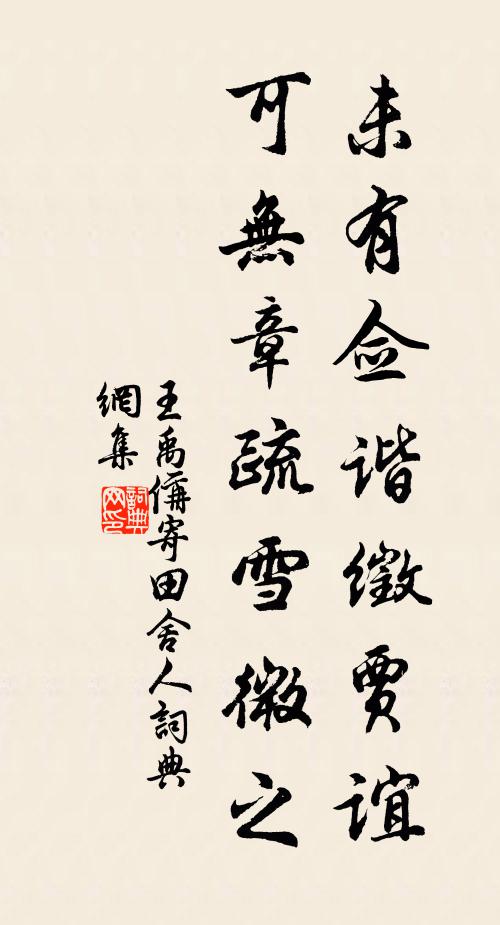 未有僉谐徵賈誼
可無章疏雪微之
王禹偁寄田舍人詞典
網集
詞典網印